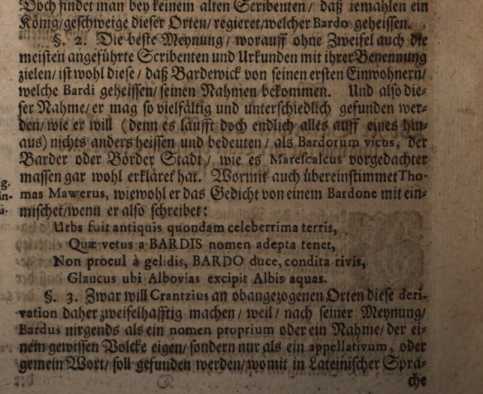 Doch findet man bey keinem alten Scribenten / daß jemahlen ein
König/geschweige dieser Orten/ regieret/welcher Bardo geheissen.
§. 2. Die beste Meynung/ worauff ohne Zweifel auch die
meisten angeführte Scribenten und Urkunden mit ihrer Benennung
zielen/ ist wohl diese / daß Bardewick von seinen ersten Einwohnern/
welche Bardi geheissen/ seinen Nahmen bekommen. Und also die-
ser Nahme/ er mag so vielfältig und unterschiedlich gefunden wer-
den/ wie er will (denn es läufft doch endlich alles auff eines hin-
aus) nichts anders heissen und bedeuten / als Bardorum vicus, der
Barder oder Börder Stadt/ wie es Marescalcus vorgedachter
massen gar wohl erkläret hat. Wormit auch übereinstimmet Tho-
mas Mawerus, wiewohl er das Gedicht von einem Bardone mit ein-
mischet/wenn er also schreibet:
Urbs fuit antiquis quondam celeberrima terris,
Quæ vetus a BARDIS nomen adepta tenet,
Non procul à gelidis, BARDO duce, condita rivis,
Glaucus ubi Albovias excipit Albis aquas.
§. 3. Zwar will Crantzius an obangezogenen Orten diese deri-
vation daher zweifelhafftig machen / weil/ nach seiner Meynung/
Bardus nirgends als ein nomen proprium oder ein Nahme/ der ei-
nem gewissen Volcke eigen/ sondern nur als ein appellativum, oder
gemein Wort/ soll gefunden werden/ womit in Lateinischer Spra-
che